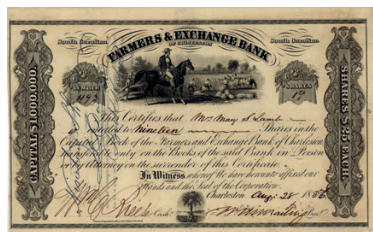 South Carolina
South Carolina
FARMERS & EXCHANGE BANK
OF CHARLESTON
CAPITAL $1,000,000.
SHARES $25 EACH.
This Certifies that Mrs Mary S Lamb
is entitled to Nineteen Shares in the
Capital Stock of the Farmers and Exchange Bank of Charleston
transferable only on the Books of the said Bank in Person
or by Attorney on the surrender of this Certificate.
In Witness whereof We have hereunto affixed our
Hands and the Seal of the Corporation
Charleston Aug: 28 185
Cash
Pres